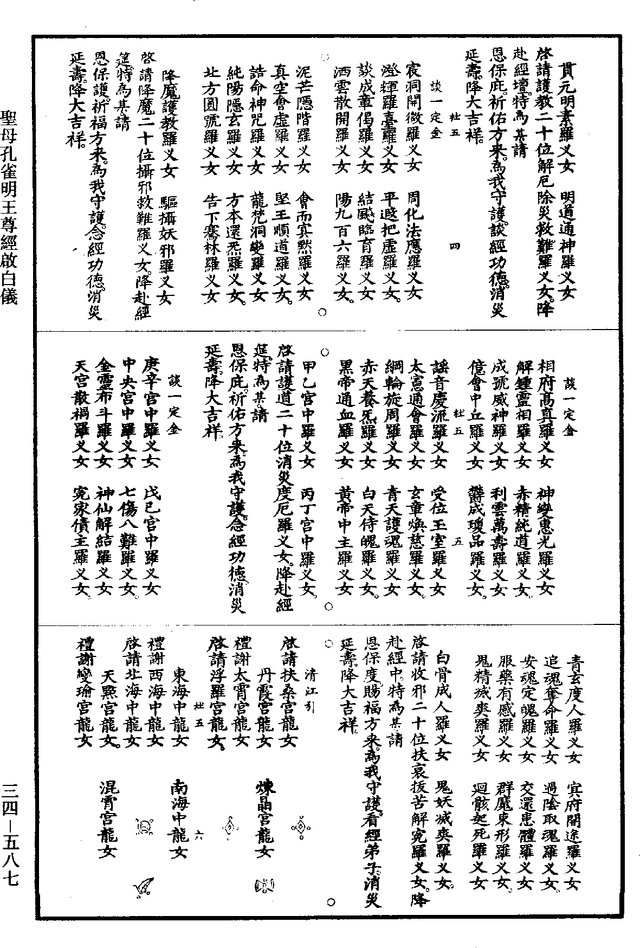 貫元明素羅义女　明道通神羅义女
啓請護教二十位解厄除災救難羅义女。降
赴經壇。特為某請
恩保庇。祈佑方來。為我守護。談經功德。消災
延壽。降大吉祥。
杜五　四
談一定金
宸洞開微羅义女　周化法應羅义女
澄輝羅臺羅义女　平遐把虛羅义女
談成章偈羅义女　結威臨育羅义女
洒雲散開羅义女　陽九百六羅义女
泥芒隱階羅义女　會而冥默羅义女
真空會虛羅义女　堅王順道羅义女
誥命神咒羅义女　龍梵洞變羅义女
純陽隱玄羅义女　方本還炁羅义女
北方圓號羅义女　告下騫林羅义女
降魔護教羅义女　驅攝妖邪羅义女
啓請降魔二十位攝邪救難羅义女。降赴經
筵。特為某請
恩保護。祈福方來。為我守護。念經功德。消災
延壽。降大吉祥。
談一定金
相府高真羅义女　神變惠光羅义女
解鍾靈相羅义女　赤精統道羅义女
成號威神羅义女　利雲萬壽羅义女
億會中丘羅义女　欝成瓊品羅义女
杜五　五
謠音慶流羅义女　受位玉室羅义女
太憲通會羅义女　玄章煥慈羅义女
綱輪旋周羅义女　青天護魂羅义女
赤天養炁羅义女　白天侍魄羅义女
黑帝通血羅义女　黃帝中主羅义女
甲乙宮中羅义女　丙丁宮中羅义女
啓請護道二十位消災度厄羅义女。降赴經
筵。特為某請
恩保庇。祈佑方來。為我守護。念經功德。消災
延壽。降大吉祥。
談一定金
庚辛宮中羅义女　戊巳宮中羅义女
中央宮中羅义女　七傷八難羅义女
金靈布斗羅义女　神仙解結羅义女
天宮散禍羅义女　寃家債主羅义女
青玄度人羅义女　冥府開途羅义女
追魂奪命羅义女　過陰取魂羅义女
安魂定魄羅义女　交還患體羅义女
服藥有感羅义女　群魔束形羅义女
鬼精滅爽羅义女　迴骸起死羅义女
白骨成人羅义女　鬼妖滅爽羅义女
啓請收邪二十位扶哀拔苦解寃羅义女。降
赴經中。特為某請
恩保度。賜福方來。為我守護。看經弟子。消災
延壽。降大吉祥。
清江引
啓請扶桑宮龍女
丹霞宮龍女　煉晶宮龍女
禮謝太霄宮龍女
啓請浮羅宮龍女
杜五　六
東海中龍女　南海中龍女
禮謝西海中龍女
啓請北海中龍女
天黙宮龍女　混霄宮龍女
禮謝變瑜宮龍女
聖母孔雀明王尊經啟白儀
三四—五八七